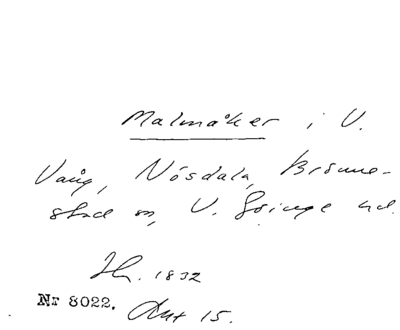 Malmåker i V.
Vång, Nösdala, Brönne-
stad o, V. Göinge hd.
Jh. 1832
Nr 8022. Aut 15.